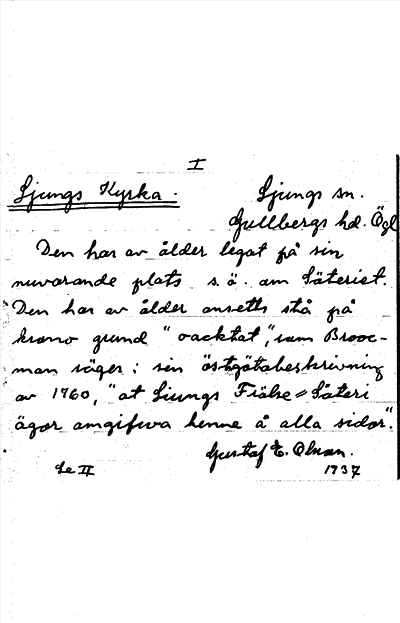 I
Ljungs Kyrka.
Ljungs sn.
Gullbergs hd. Ögl
Den har av ålder legat på sin
nuvarande plats s.ö. om Säteriet.
Den har av ålder ansetts stå på
krono grund "oacktat", som Brooc-
man säger i sin östgötabeskrivning
av 1760, "at Liungs Fräkse=Säteri
ägor omgifwa henne å alla sidor".
Gustaf E. Olsson.
Se II
1937